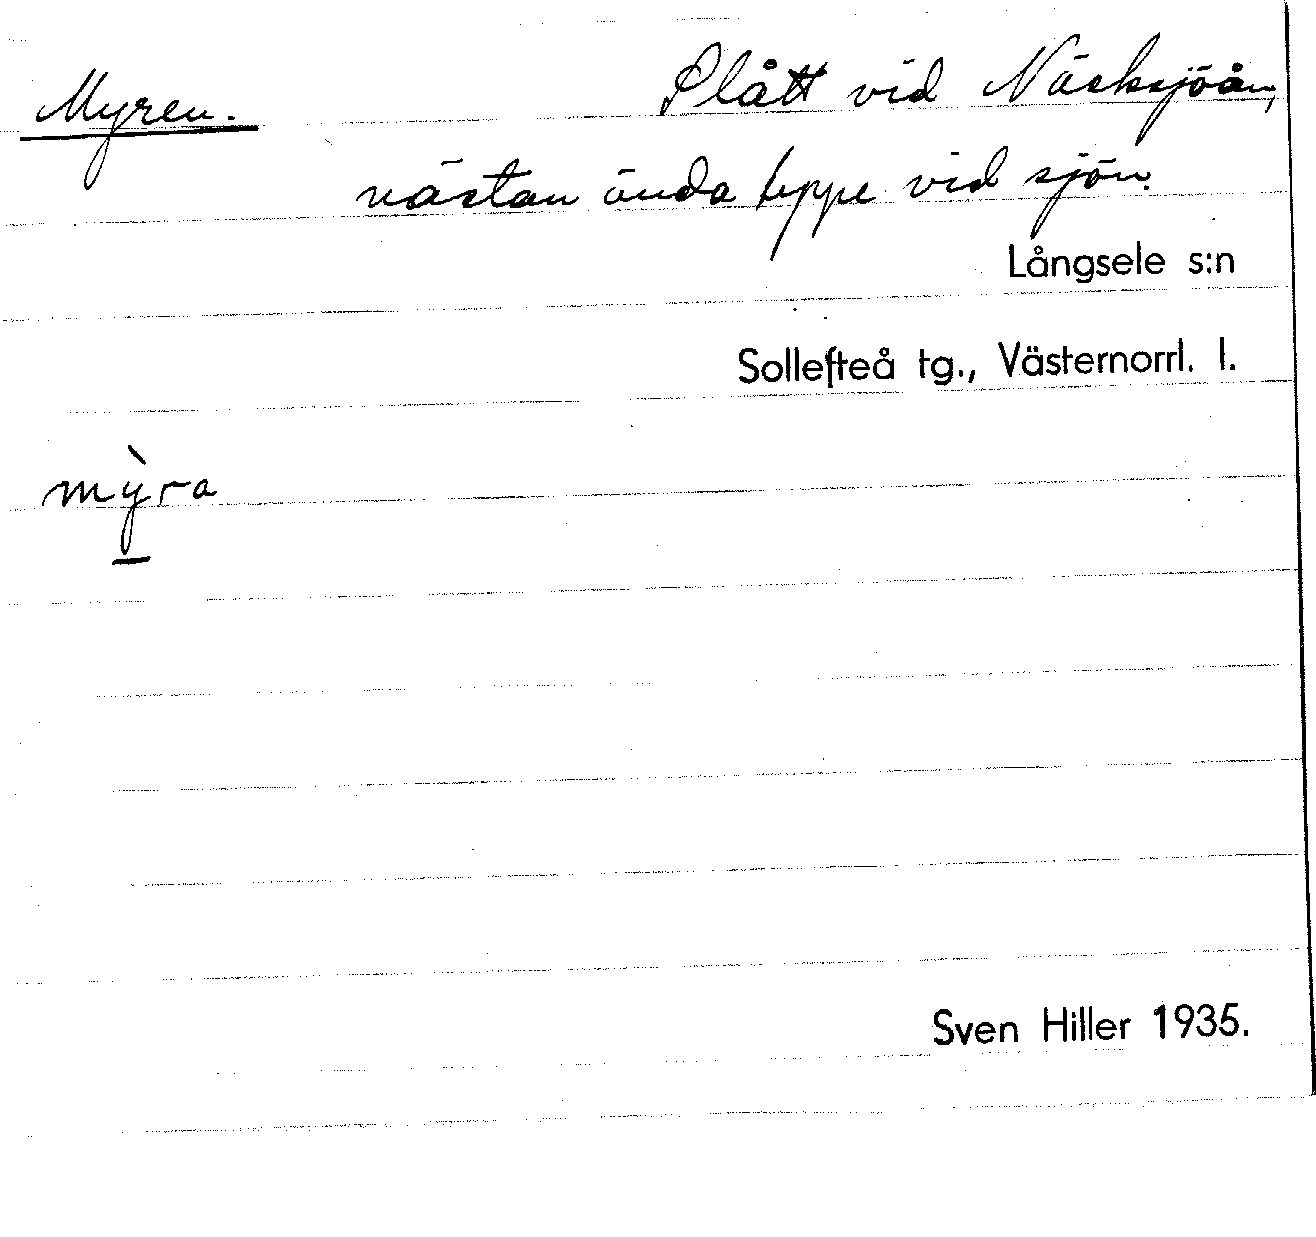 Myren. Slått vid Näcksjöån,
nästan ända uppe vid sjön.
Långsele s:n
Sollefteå tg., Västernorrl. l.
mỳra
Sven Hiller 1935.